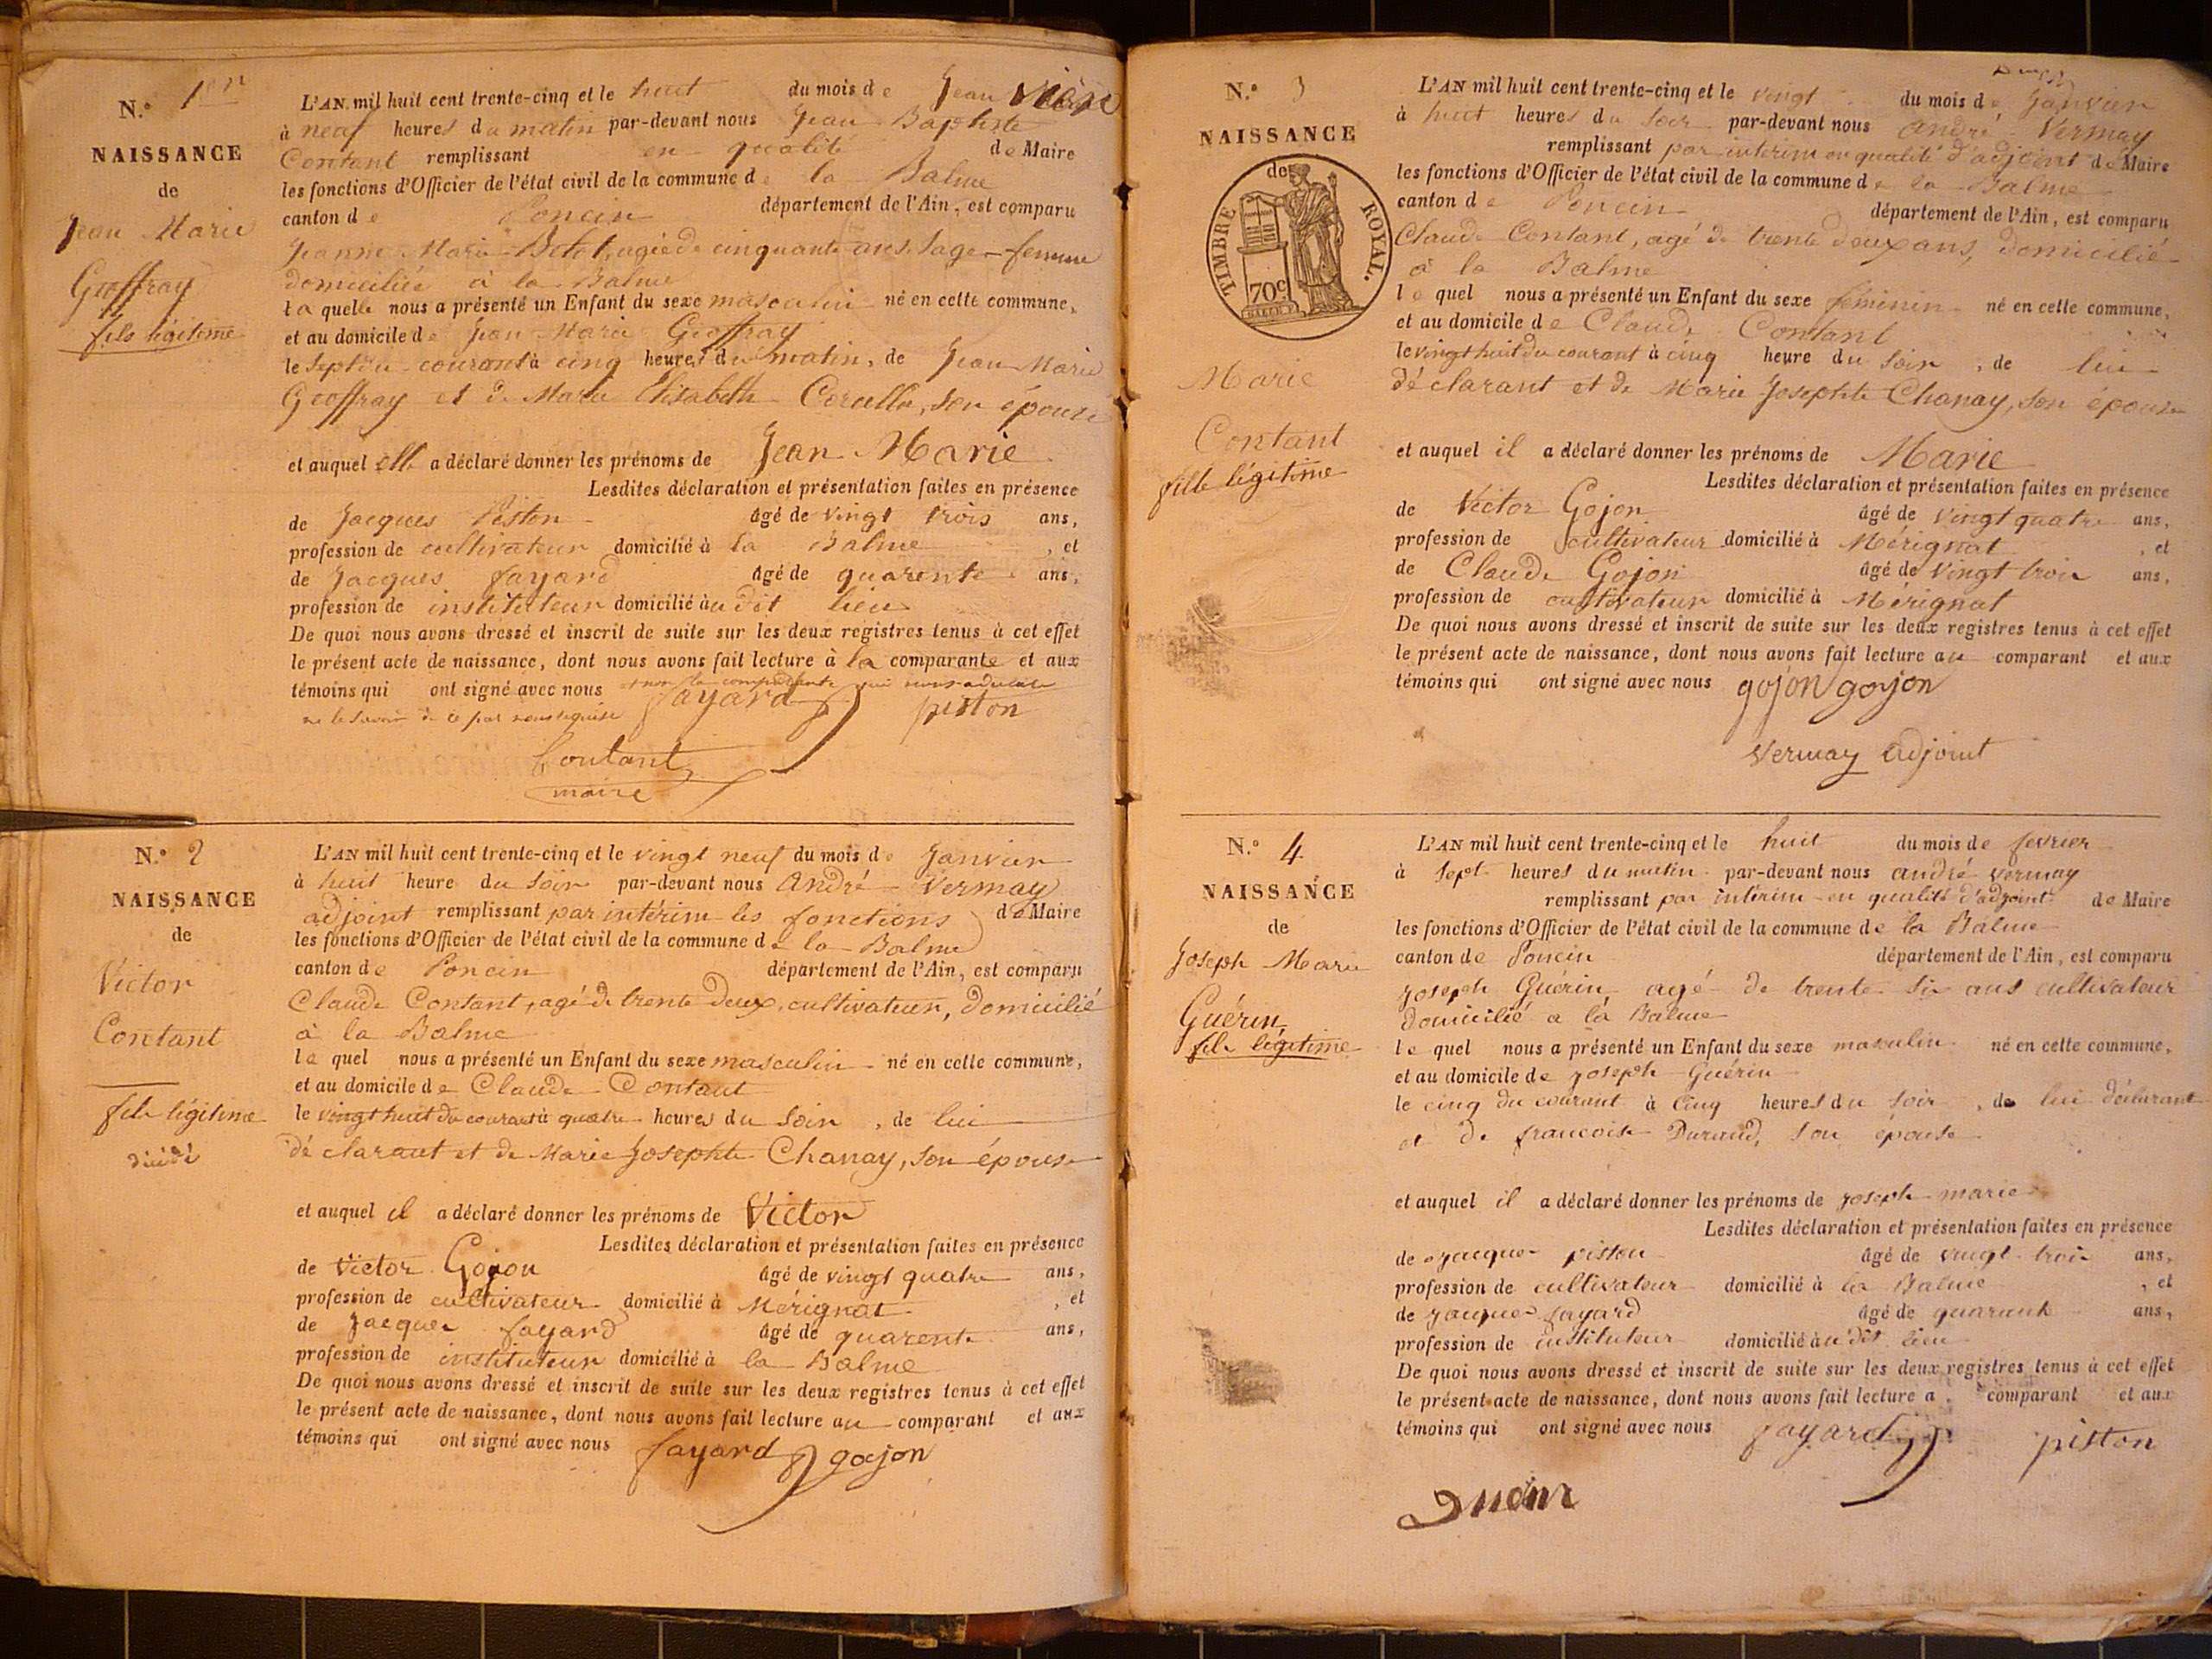 N.° 1er
NAISSANCE
de
Jean Marie
Geoffray
fils légitime
L'AN mil huit cent trente-cinq et le huit du mois de Jean
à neuf heures du matin par-devant nous Jean Baptiste
Contant remplissant en qualité de Maire
les fonctions d'Officier de l'état civil de la commune de la Balme
canton de Poncin département de l'Ain, est comparu
Jeanne Marie agée de cinquante ans, sage-femme
domiciliée à la Balme
la quelle nous a présenté un Enfant du sexe masculin né en cette commune,
et au domicile de Jean Marie Geoffray
le sept du courant à cinq heures du matin, de Jean Marie
Geoffray et de Marie Elisabeth son épouse
et auquel elle a déclaré donner les prénoms de Jean Marie
Lesdites déclaration et présentation faites en présence
de Jacques Piston âgé de vingt trois ans,
profession de cultivateur domicilié à la Balme, et
de Jacques fayard âgé de quarente ans,
profession de instituteur domicilié au dit lieu
De quoi nous avons dressé et inscrit de suite sur les deux registres tenus à cet effet
le présent acte de naissance, dont nous avons fait lecture à la comparante et aux
témoins qui ont signé avec nous non la comparante qui nous a déclaré
ne le savoir de ce par nous requise fayard piston
Contant
maire
N.° 2
NAISSANCE
de
Victor
Contant
fils légitime
décédé
L'AN mil huit cent trente-cinq et le vingt neuf du mois de Janvier
à huit heure du soir par-devant nous André Vermay
adjoint remplissant par intérim les fonctions de Maire
les fonctions d'Officier de l'état civil de la commune de la Balme
canton de Poncin département de l'Ain, est comparu
Claude Contant, agé de trente deux, cultivateur, domicilié
à la Balme
le quel nous a présenté un Enfant du sexe masculin né en cette commune,
et au domicile de Claude Contant
le vingt huit du courant à quatre heures du soir, de lui
déclarant et de Marie Josephte Chanay, son épouse
et auquel il a déclaré donner les prénoms de Victor
Lesdites déclaration et présentation faites en présence
de Victor Gojon âgé de vingt quatre ans,
profession de cultivateur domicilié à Mérignat, et
de Jacques fayard âgé de quarente ans,
profession de instituteur domicilié à la Balme
De quoi nous avons dressé et inscrit de suite sur les deux registres tenus à cet effet
le présent acte de naissance, dont nous avons fait lecture au comparant et aux
témoins qui ont signé avec nous fayard gojon
N.° 3
NAISSANCE
de
TIMBRE ROYAL.
70c
Marie
Contant
fille légitime
L'AN mil huit cent trente-cinq et le vingt du mois de Janvier
à huit heures du soir par-devant nous André Vermay
remplissant par interim en qualité d'adjoint de Maire
les fonctions d'Officier de l'état civil de la commune de la Balme
canton de Poncin département de l'Ain, est comparu
Claude Contant, agé de trente deux ans, domicilié
à la Balme
le quel nous a présenté un Enfant du sexe féminin né en cette commune,
et au domicile de Claude Contant
le vingt huit du courant à cinq heure du soir, de lui
déclarant et de Marie Josephte Chanay, son épouse
et auquel il a déclaré donner les prénoms de Marie
Lesdites déclaration et présentation faites en présence
de Victor Gojon âgé de vingt quatre ans,
profession de cultivateur domicilié à Mérignat, et
de Claude Gojon âgé de vingt trois ans,
profession de cultivateur domicilié à Mérignat
De quoi nous avons dressé et inscrit de suite sur les deux registres tenus à cet effet
le présent acte de naissance, dont nous avons fait lecture au comparant et aux
témoins qui ont signé avec nous gojon gojon
Vermay adjoint
N.° 4
NAISSANCE
de
Joseph Marie
Guérin
fils légitime
L'AN mil huit cent trente-cinq et le huit du mois de fevrier
à sept heures du matin par-devant nous andré Vermay
remplissant par intérim en qualité d'adjoint de Maire
les fonctions d'Officier de l'état civil de la commune de la Balme
canton de Poncin département de l'Ain, est comparu
joseph Guérin agé de trente six ans cultivateur
domicilié a la Balme
le quel nous a présenté un Enfant du sexe masculin né en cette commune,
et au domicile de joseph Guérin
le cinq du courant à cinq heures du soir, de lui déclarant
et de francoise Durand, son épouse
et auquel il a déclaré donner les prénoms de joseph marie
Lesdites déclaration et présentation faites en présence
de jacques piston âgé de vingt trois ans,
profession de cultivateur domicilié à la Balme, et
de jacques fayard âgé de quarante ans,
profession de instituteur domicilié au dit lieu
De quoi nous avons dressé et inscrit de suite sur les deux registres tenus à cet effet
le présent acte de naissance, dont nous avons fait lecture a comparant et aux
témoins qui ont signé avec nous fayard piston